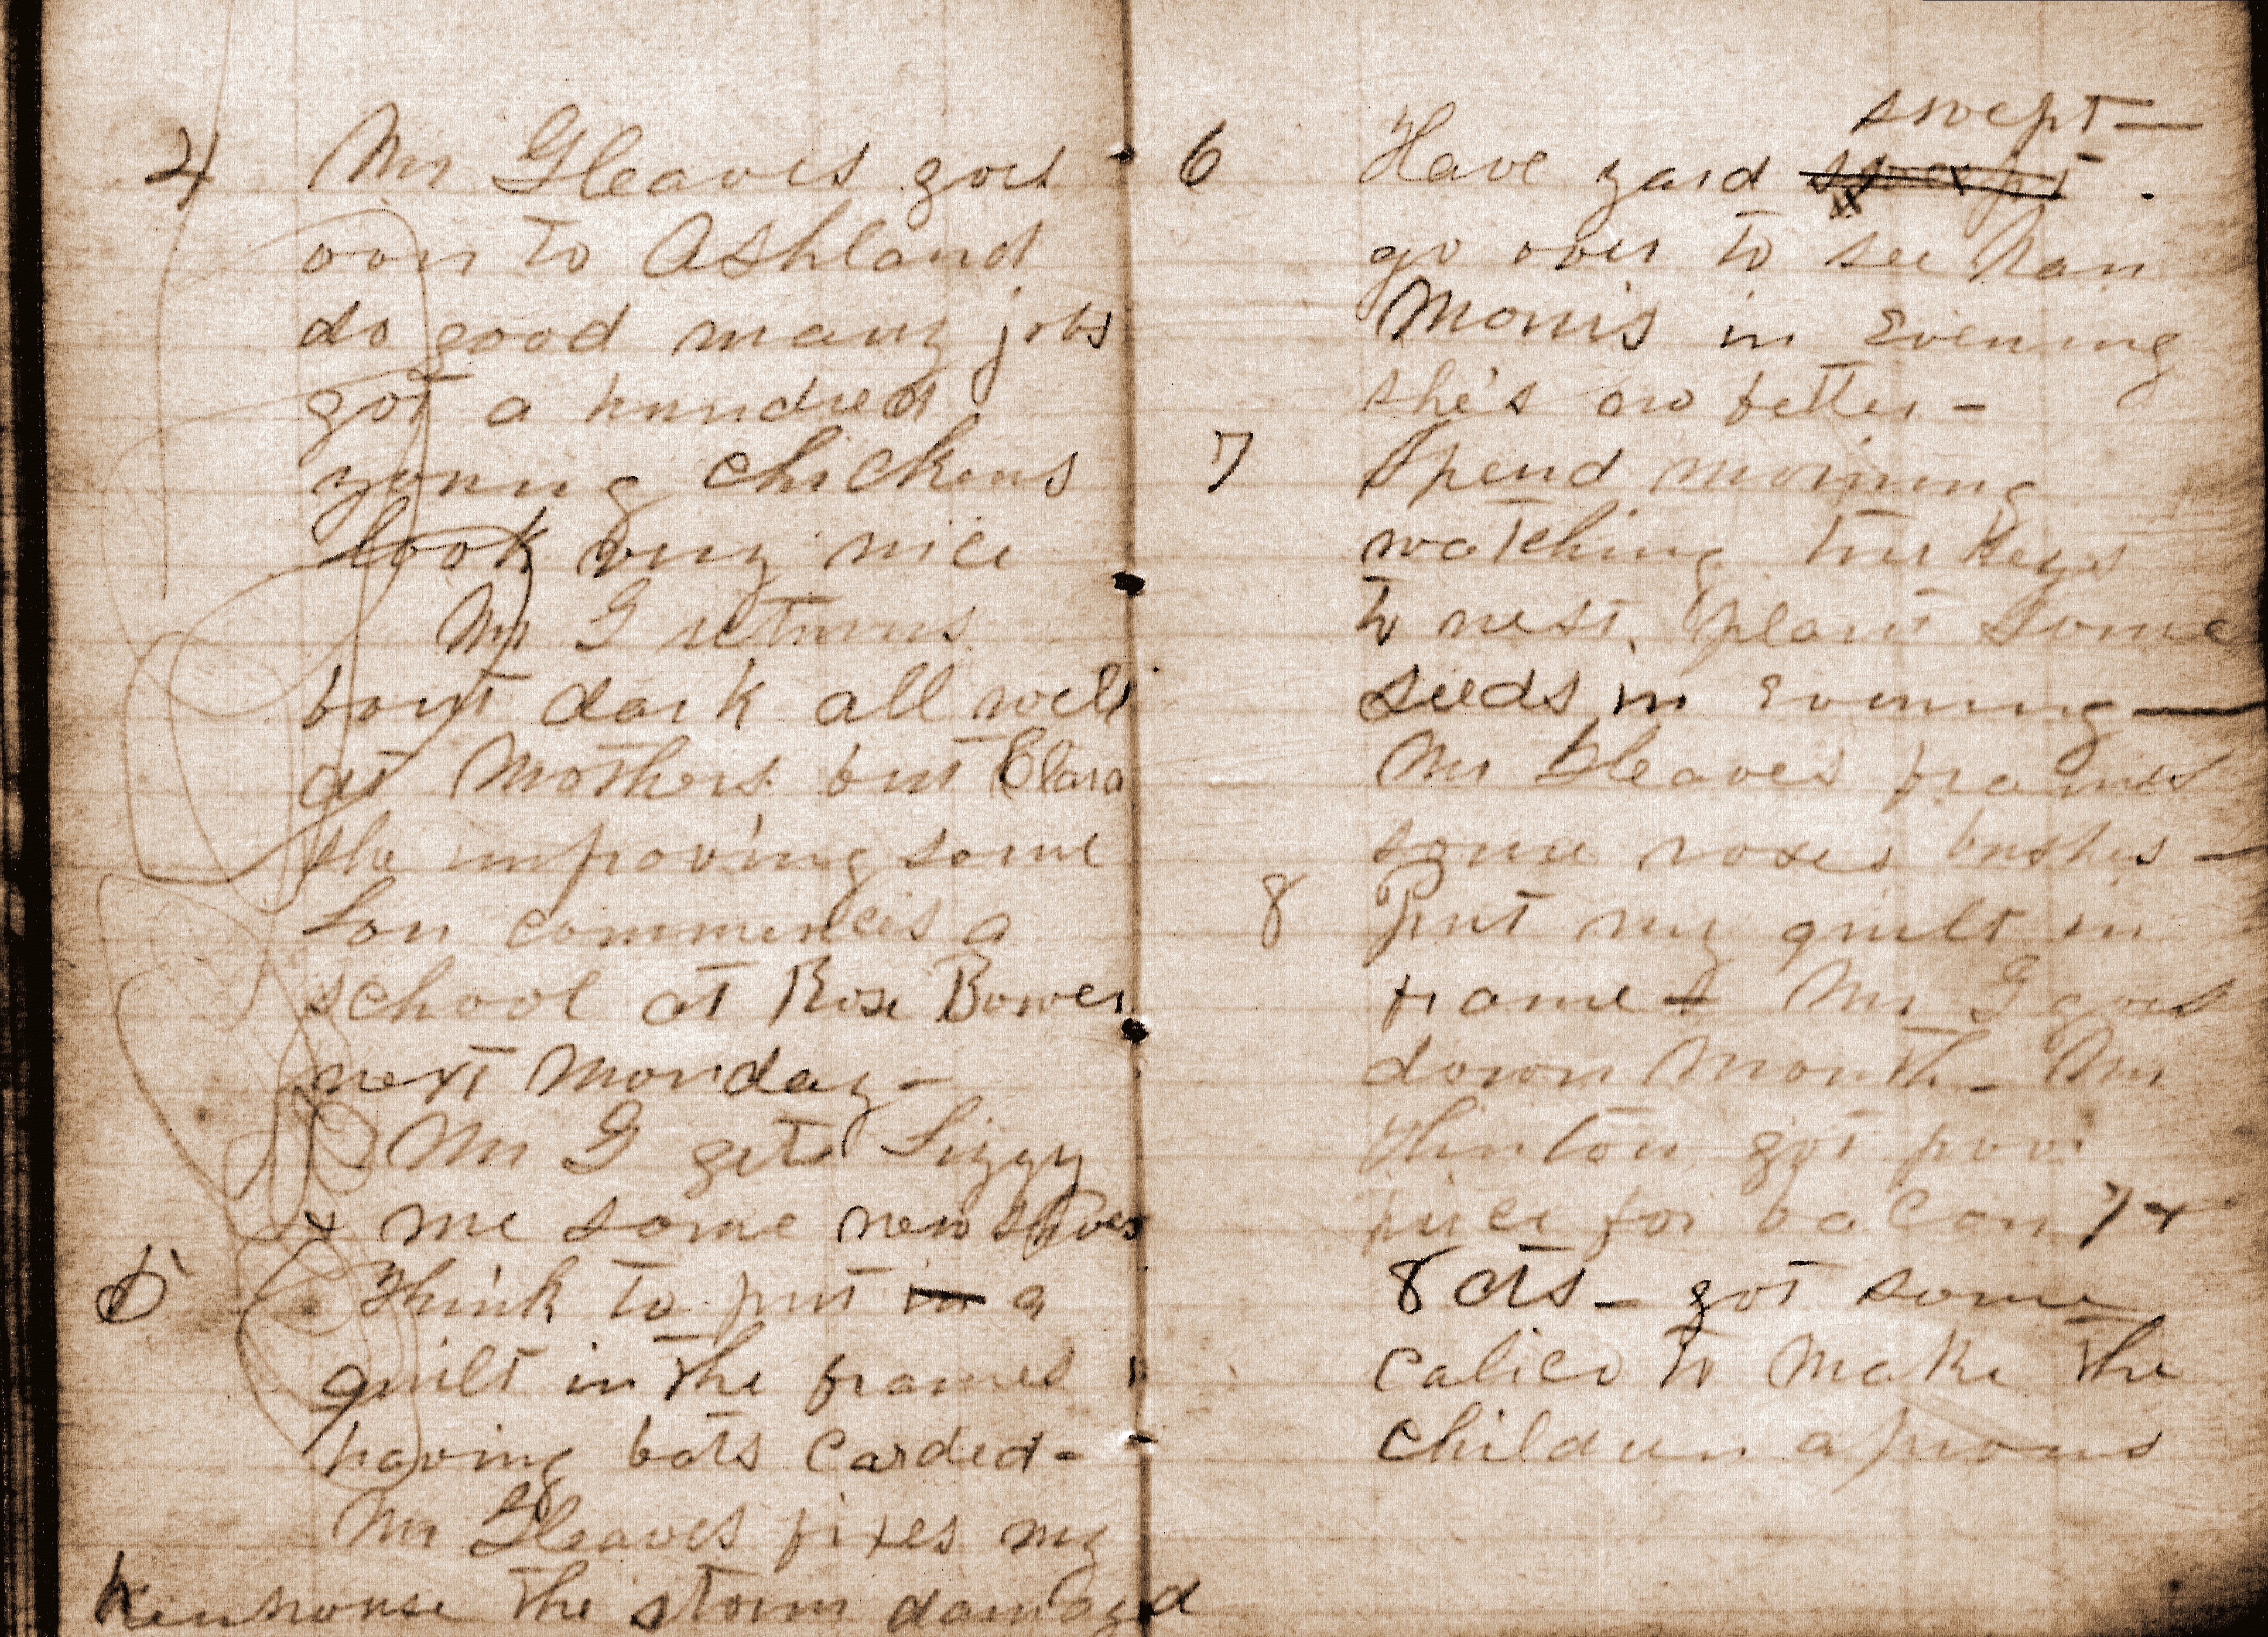 4 Mr Gleaves goes
oon to Ashland
do good many jobs
got a hundred
young chickens
look very nice
Mr G returns
bout dark all well
at Mothers but Clara
she improving some
Lou commences a
school at Rose Bower
next Monday -
Mr G gets Lizzy
& me some new shoes
5 Think to put in a
quilt in the frames
having bats carded -
Mr Gleaves fixes my
henhouse the storm damagd
swept —
6 Have yard .
go over to see Nan
Morris in Evening
she's no better -
7 Spend morning
watching turkeys
to nest, plant some
seeds in Evening —
Mr Gleaves frames
some roses bushes —
8 Put my quilt in
frames Mr G goes
down Mouth - Mr
Hinton got poor
price for bacon 7 &
8 cts - got some
calico to make the
children aprons